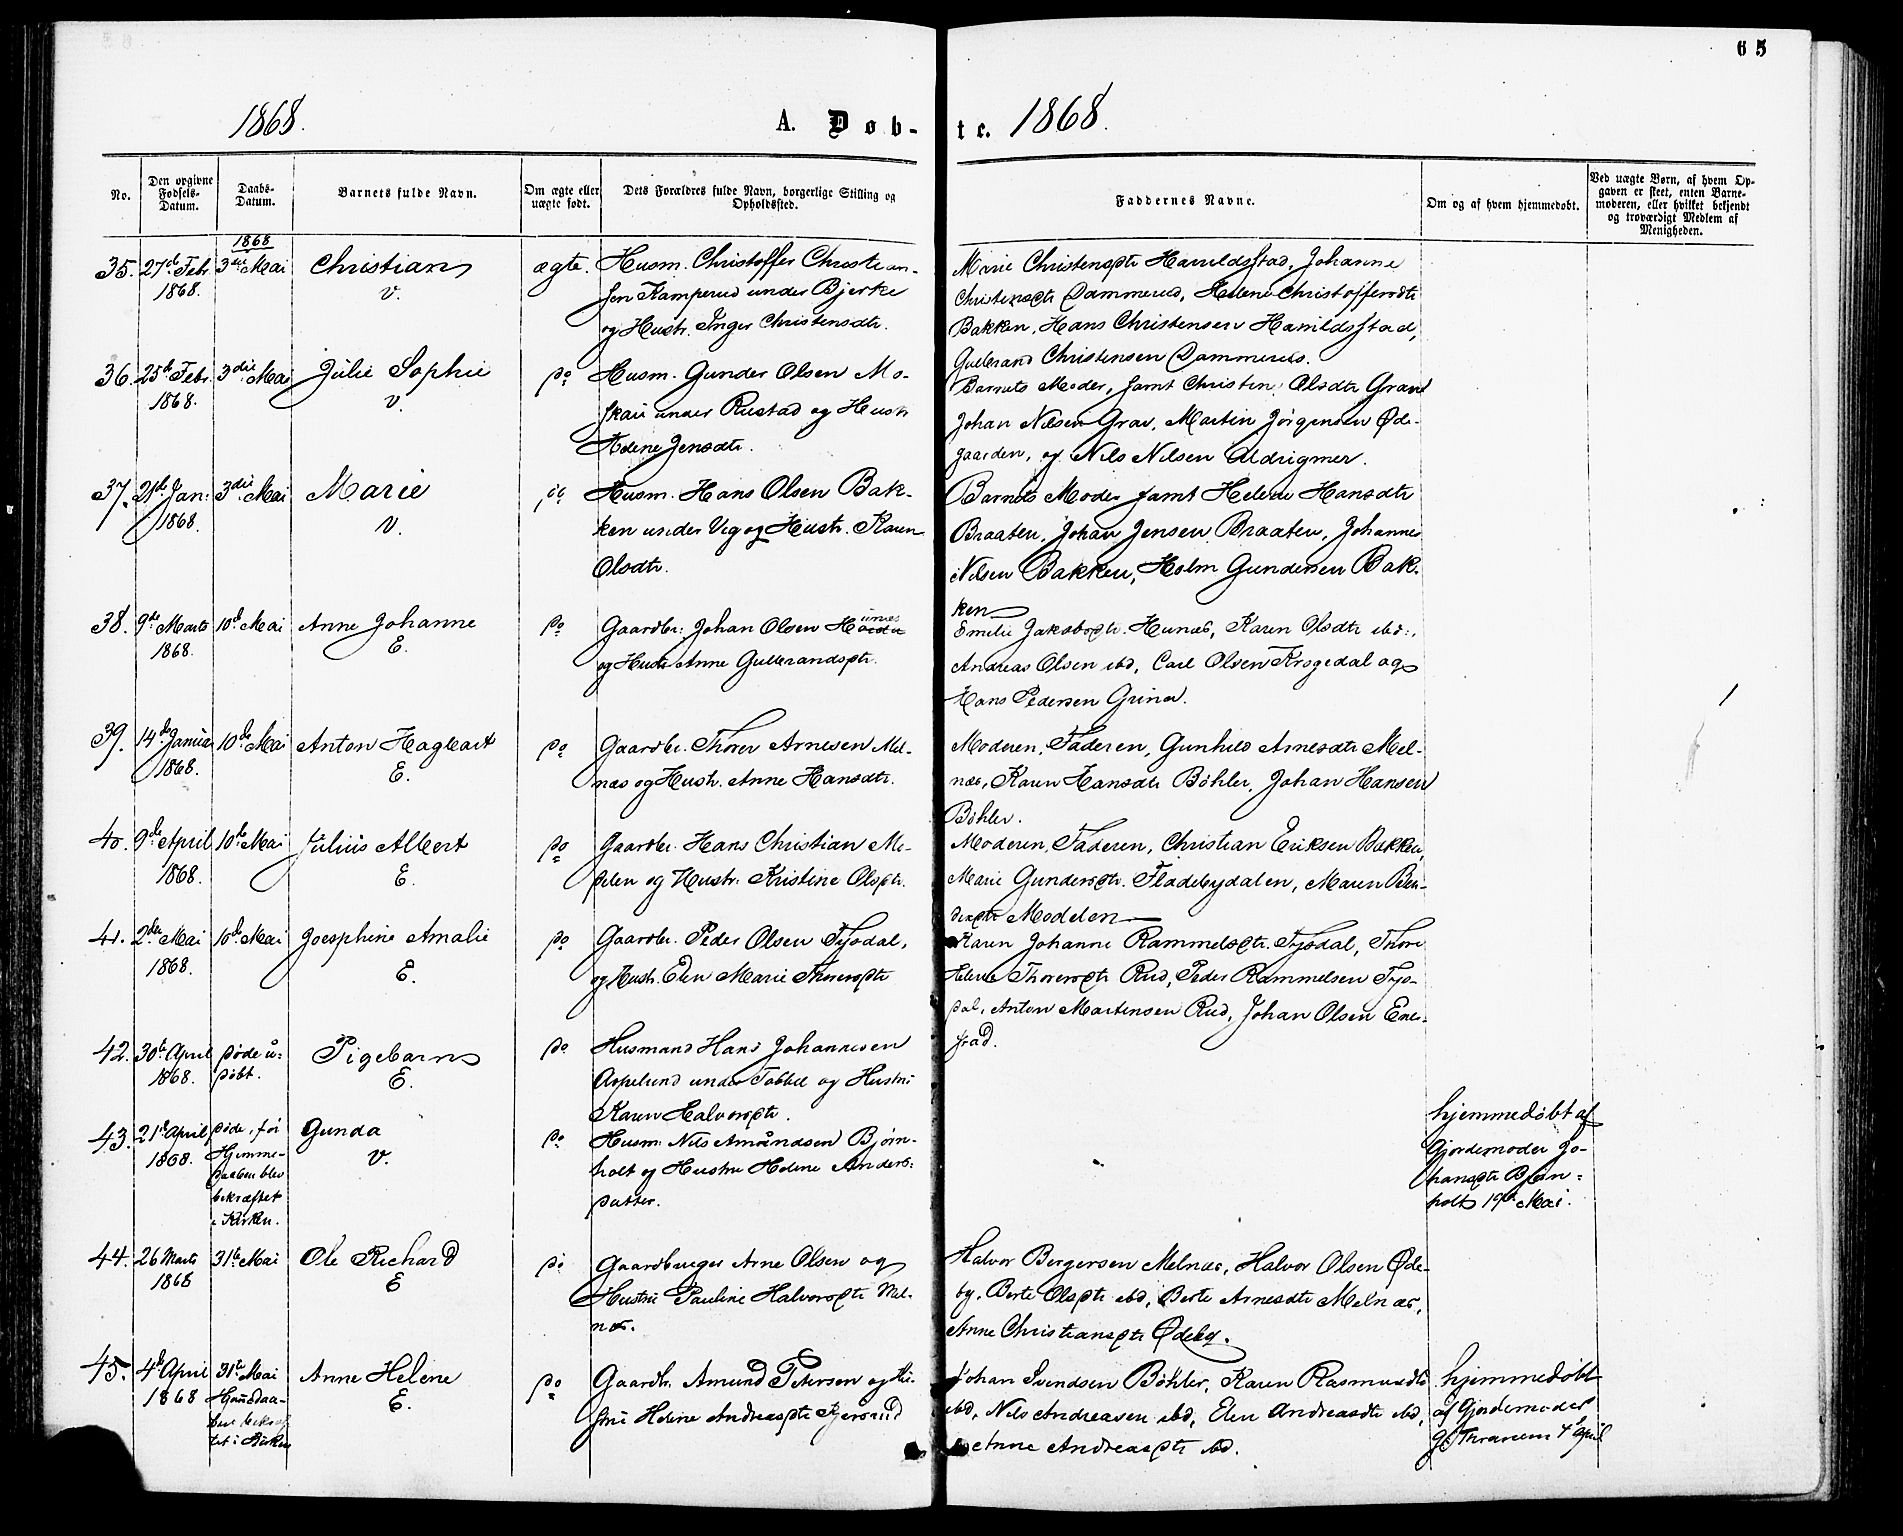 65
1868.
A. Døb-
te. 1868.
No.
Den opgivne Fødsels-Datum.
Daabs-Datum.
Barnets fulde Navn.
Om ægte eller uægte født.
Dets Forældres fulde Navn, borgerlige Stilling og Opholdssted.
Faddernes Navne.
Om og af hvem hjemmedøbt.
Ved uægte Børn, af hvem Op-
gaven er skeet, enten Barne-
moderen, eller hvilket bekjendt
og troværdigt Medlem af
Menigheden.
1868
35. 27de Febr 1868. 3die Mai Christian V. ægte. Husm. Christoffer Christian-
sen Kamperud under Bjerke
og Hustr. Inger Christensdtr.
Marie Christensdtr Haraldsstad, Johanne
Christensdtr Dammerud, Helene Christoffersdtr
Bakken, Hans Christensen Haraldsstad,
Gulbrand Christensen Dammerud.
36. 25de Febr. 1868. 3die Mai Julie Sophie V. do Husm. Gunder Olsen Mo-
skau under Rustad og Hustr
Helene Jensdtr.
Barnets Moder, samt Christine Olsdtr Grav
Johan Nilsen Grav, Martin Jørgensen Øde-
gaarden, og Nils Nilsen Aldrigmer.
37. 21de Jan: 1868. 3die Mai Marie V. do Husm. Hans Olsen Bak-
ken under Vig og Hustr. Karen
Olsdtr.
Barnets Moder samt Helene Hansdtr
Braaten, Johan Jensen Braaten, Johannes
Nilsen Bakken, Holm Gundersen Bak-
ken
38. 9de Marts 1868. 10de Mai Anne Johanne E. do Gaardbr: Johan Olsen
og Hustr Anne Gulbrandsdtr.
Emilie Jakobsdtr. Hunæs, Karen Olsdtr ibd:,
Andreas Olsen ibd, Carl Olsen Krogedal og
Hans Pedersen Grina.
39. 14de Januar 1868. 10de Mai Anton Hagbart E. do Gaardbr. Thorer Arnesen Mel-
næs og Hustr. Anne Hansdtr.
Moderen, Faderen, Gunhild Arnesdtr Mel-
næs, Karen Hansdtr Bøhler, Johan Hansen
Bøhler.
40. 9de April 1868. 10de Mai Julius Albert E. do Gaardbr. Hans Christian Mo-
delen og Hustr. Kristine Olsdtr.
Moderen, Faderen, Christian Eriksen Bakken,
Marie Gundersdtr. Fladebydalen, Maren Peder-
Moddelen
41. 2den Mai 1868. 10de Mai Joesphine Amalie E. do Gaardbr. Peder Olsen Tysdal,
og Hustr. Elen Marie Thorersdtr
Karen Johanne Rammelsdtr. Tysdal, Thore
Helene Thorersdtr Rud, Peder Rammelsen Tys-
dal, Anton Martinsen Rud, Johan Olsen Ene-
stad.
42. 30te April 1868. døde u:
døbt. Pigebarn E. do Husmand Hans Johannesen
Aspelund under Tobbel og Hustru
Karen Halvorsdtr.
43. 21de April 1868. døde, før
Hjemme-
daaben blev
bekræftet
i Kirken. Gunda V. do Husm: Nils Amundsen Bjørn-
holt og Hustru Helene Anders-
datter.
hjemmedøbt af
Gjordemoder Jo-
hansdtr Bjørn-
holt 19de Mai.
44. 26 Marts 1868 31te Mai Ole Richard E do Gaardbruger Arne Olsen og
Hustru Pauline Halvorsdtr Mel-
næs.
Halvor Bergersen Melnæs, Halvor Olsen Øde-
by, Berte Olsdtr ibd, Berte Arnesdtr Melnæs,
Anne Christiansdtr Ødeby.
45. 4de April 1868 31te Mai
Hjemdaa-
ben bekræf-
tet i Kirken Anne Helene E. do Gaardbr. Amund Petersen og Hu-
stru Helene Andreasdtr Gjersrud
Johan Svendsen Bøhler, Karen Rasmusdtr
ibd, Nils Andreasen ibd, Elen Andreasdtr ibd,
Anne Andreasdtr ibd.
hjemmedøbt
af Gjordemoder
Thranem 4de April